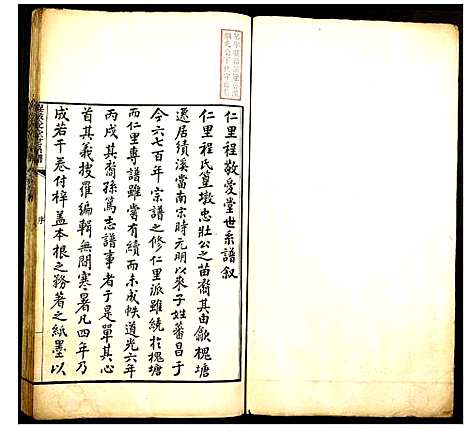 仁里程敬愛堂世系譜叙
仁里程氏篁墩忠壯公之苗裔其由歙槐塘
遷居績溪當南宗時元明以來子姓蕃昌于
今六七百年宗譜之修仁里派雖統於槐塘
而仁里專譜雖嘗有續而未成帙道光六年
丙戌其裔孫篤志譜事者于是單其心
其義搜羅編輯無間寒暑凡四年乃
成若干卷付梓蓋本根之務著之紙墨以
序